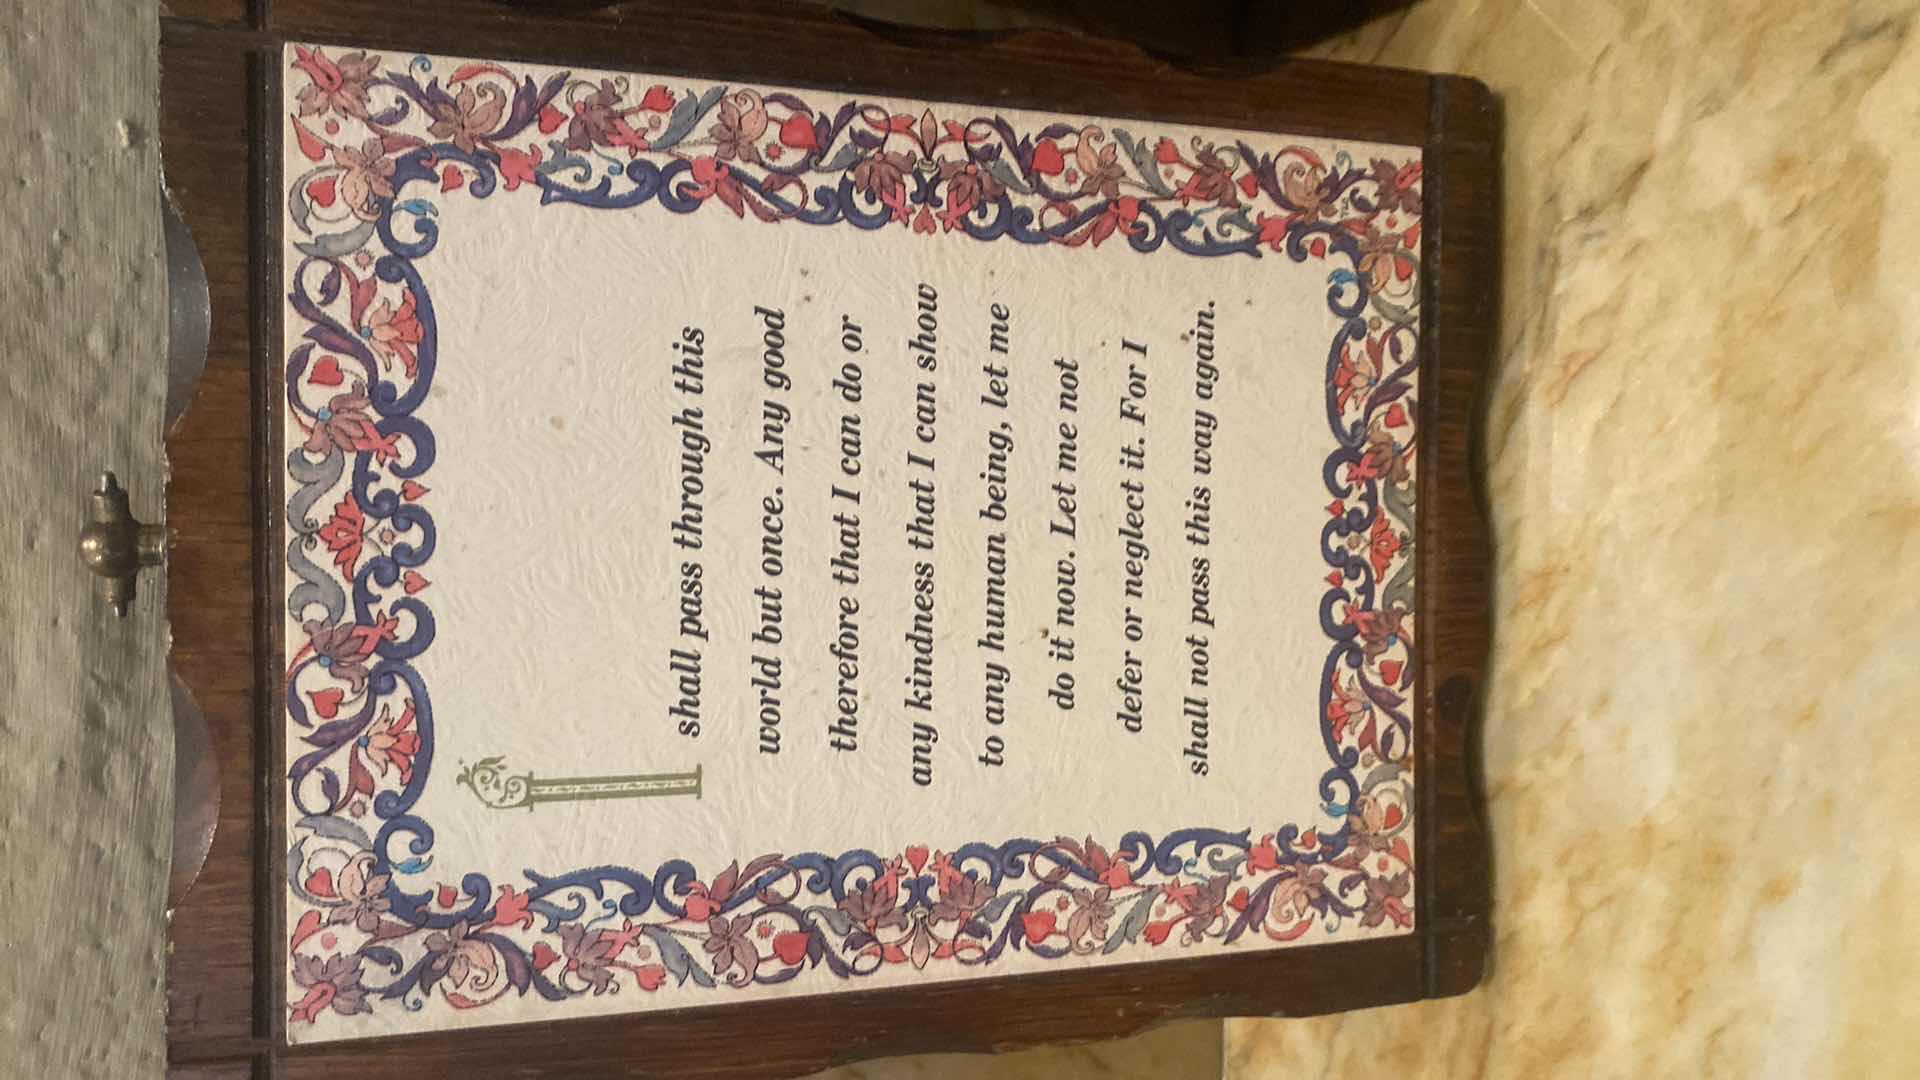 I
shall pass through this
world but once. Any good
therefore that I can do or
any kindness that I can show
to any human being, let me
do it now. Let me not
defer or neglect it. For I
shall not pass this way again.